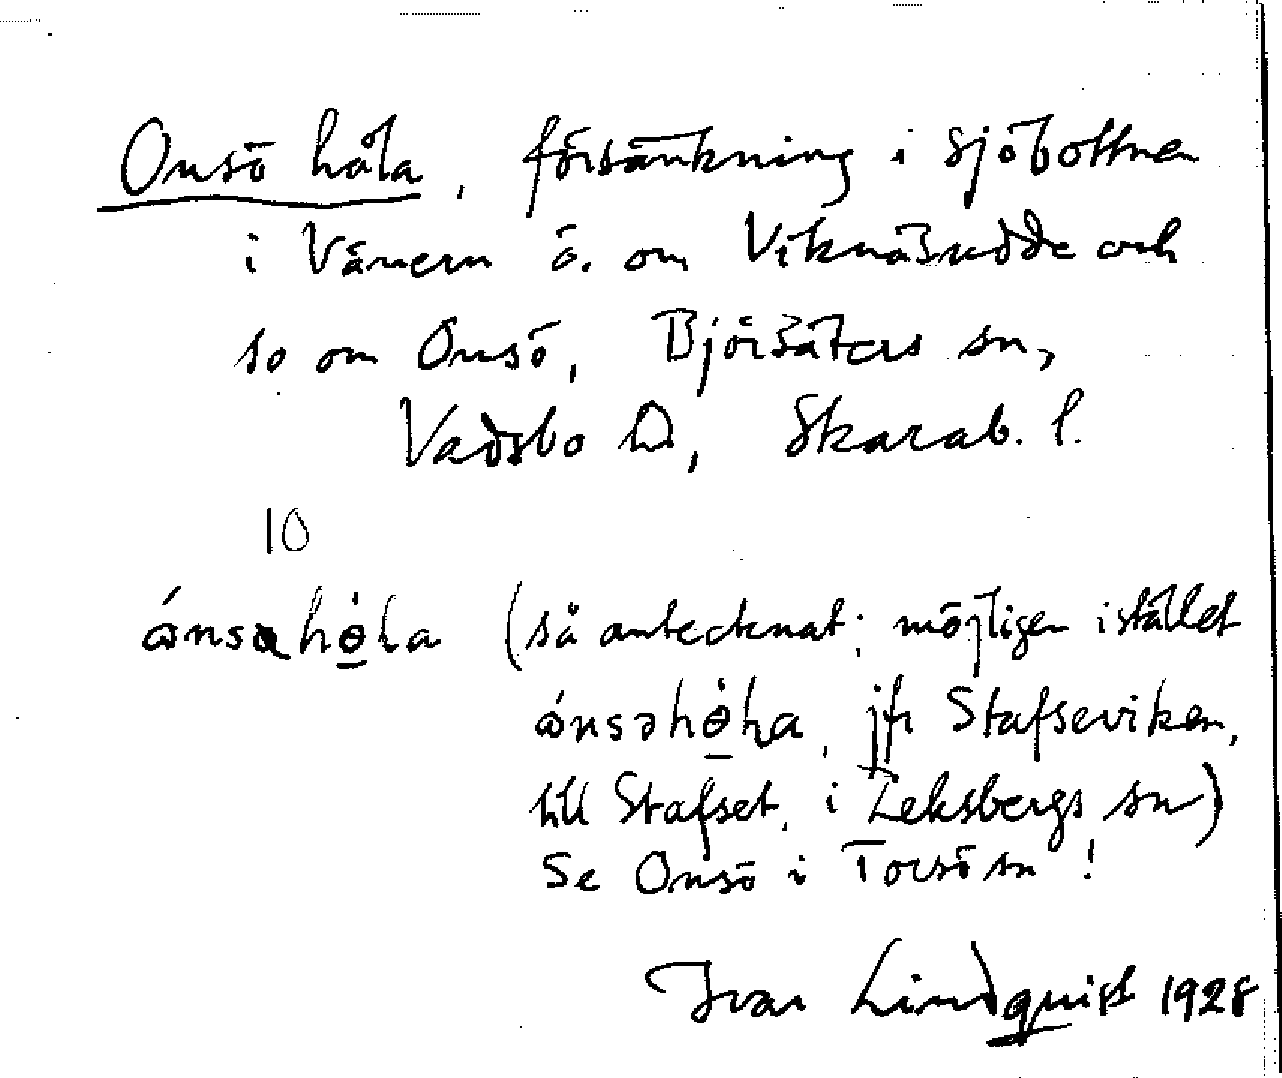 Onsö håla, försänkning i sjöbottnen
i Vänern ö. om Viknäsudde och
so om Onsö, Björsäters sn,
Vadsbo hd, Skarab. l.
10
ɷ́nsahɵ̱̇la (så antecknat; möjligen istället
ɷ́nsəhɵ̱̇la, jfr Stafseviken,
till Stafset, i Leksbergs sn)
Se Onsö i Torsö sn!
Ivar Lindquist 1928